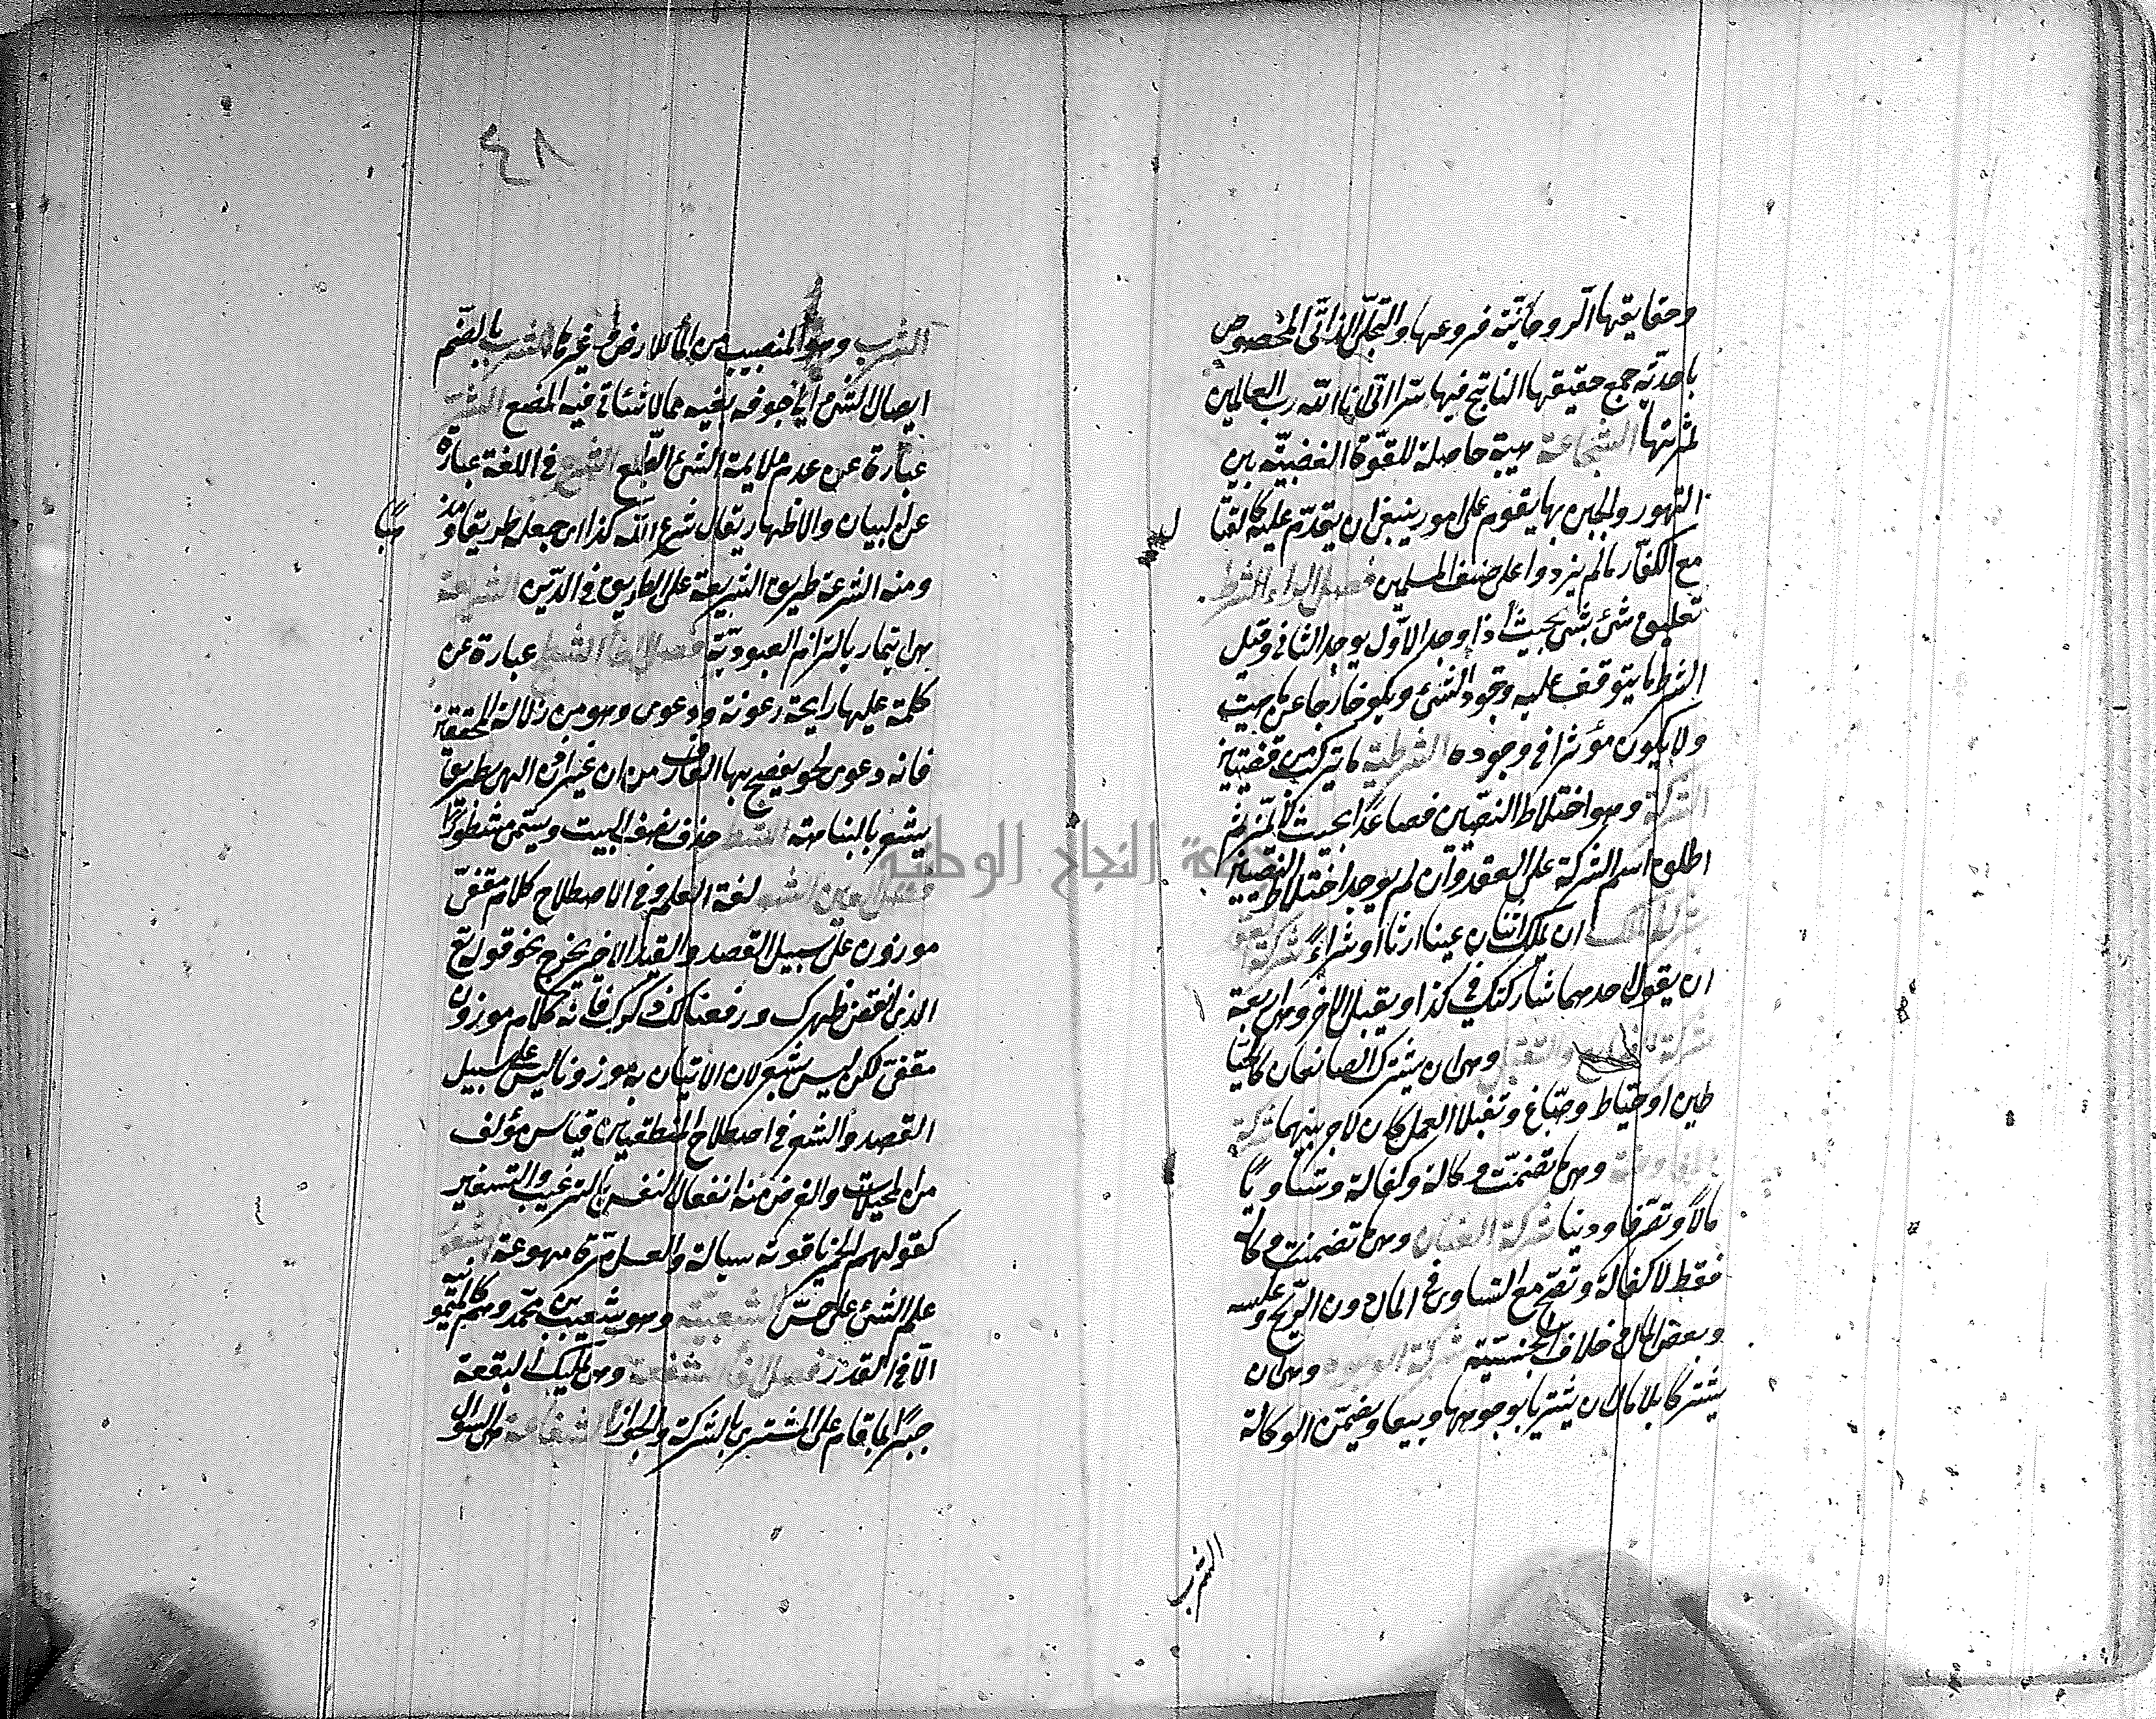 وحقايقها الروحانية فروعها والتجلى الذاتى المخصوص
باحدية جمع حقيقتها الناتج فيها سرّ انى انا الله رب العالمين
ثمرتها الشجاعة هيئة حاصلة للقوة الغضبيّة بين
التهور والجبن بها يقوم على امور ينبغى ان يتقدّم عليه كالقتا ل
مع الكفار مالم يزدوا على ضعف المسلمين فصل الراء الشرط
تعليق شئ بشئ بحيث اذا وجد الاوّل يوجد الثانى وقيل
الشرط ما يتوقف عليه وجود الشئ ويكو خارجا عن ماهيت
ولا يكون مؤثرا فى وجوده الشرطية ما تتركب من قضيتين
الشركة وهو اختلاط النصيبين فصاعدًا بحيث لا يتميز ثم
اطلق اسم الشركة على العقد وان لم يوجد اختلاط النصيبين
شركة الملك ان يملك اثنان عينا ارثا او شراءً شركة العقد
ان يقول احدهما شاركتك فى كذا ويقبل الاخر وهى اربعة
شركة الصنايع والتقبل وهى ان يشترك الصانعان كالخيا
طين او خياط وصبّاغ وتقبلا العمل كان لاجر بينهما شركة
المفاوضة وهى ما تضمنت وكالة وكفالة وتساويًا
مالاً وتصرفا ودينا شركة العنان وهى ما تضمنت وكالة
فقط لا كفالة وتصح مع التساوى فى المال دون الربح وعكسه
وبعض المال وخلاف الجنسية شركة الوجوه وهى ان
يشتركا بلا مال ان يشتريا بوجوههما ويبيعا ويضمن الوكالة
الشرب
١٤
الشرب وهو النصيب من الماء للارض وغيرها الشرب بالضم
ايصال الشئ الى جوفه بفيه مما لا يتاتى فيه المضغ الشر
عبارة عن عدم ملايمة الشئ الطبع الشرع فى اللغة عبارة
عن البيان والاظهار يقال شرع الله كذا اى جعله طريقا ومذ هبًا
ومنه الشرعة طريق الشريعة على الطريق فى الدّين الشريعة
هى ايتمار بالتزام العبوديّة فصل الطا الشطح عبارة عن
كلمة عليها رايحة رعونة ودعوى وهو من زلالة المحققين
فانه دعوى لحق يفصح بها العارف من ان غير اذن الهى بطريق
يشعر بالبناهة الشطر حذف نصف البيت ويسمى مشطورًا
فصل العين الشعر لغة العلم وفى الاصطلاح كلام مقفى
موزون على سبيل القصد والقيد الاخير يخرج نحو قوله تع
الذى انقض ظهرك ورفعنا لك ذكرك فانه كلام موزون
مقفى لكن ليس بشعر لان الاتيان به موزونا ليس على سبيل
القصد والشعر فى اصطلاح المنطقيين قياس مؤلف
من المخيلات والغرض منه انفعال النفس بالترغيب والتنفير
كقولهم الخمر ياقوتة سيالة والعسل مرة مهوعة الشعور
علم الشئ على حسّ الشعيبيّة وهو شعيب بن محمد وهم كالميمونية
الا فى القدر فصل الفا الشفعة وهى تمليك البقعة
جبرًا بما قام على المشترى بالشركة والجوار الشفاعة هى السوال